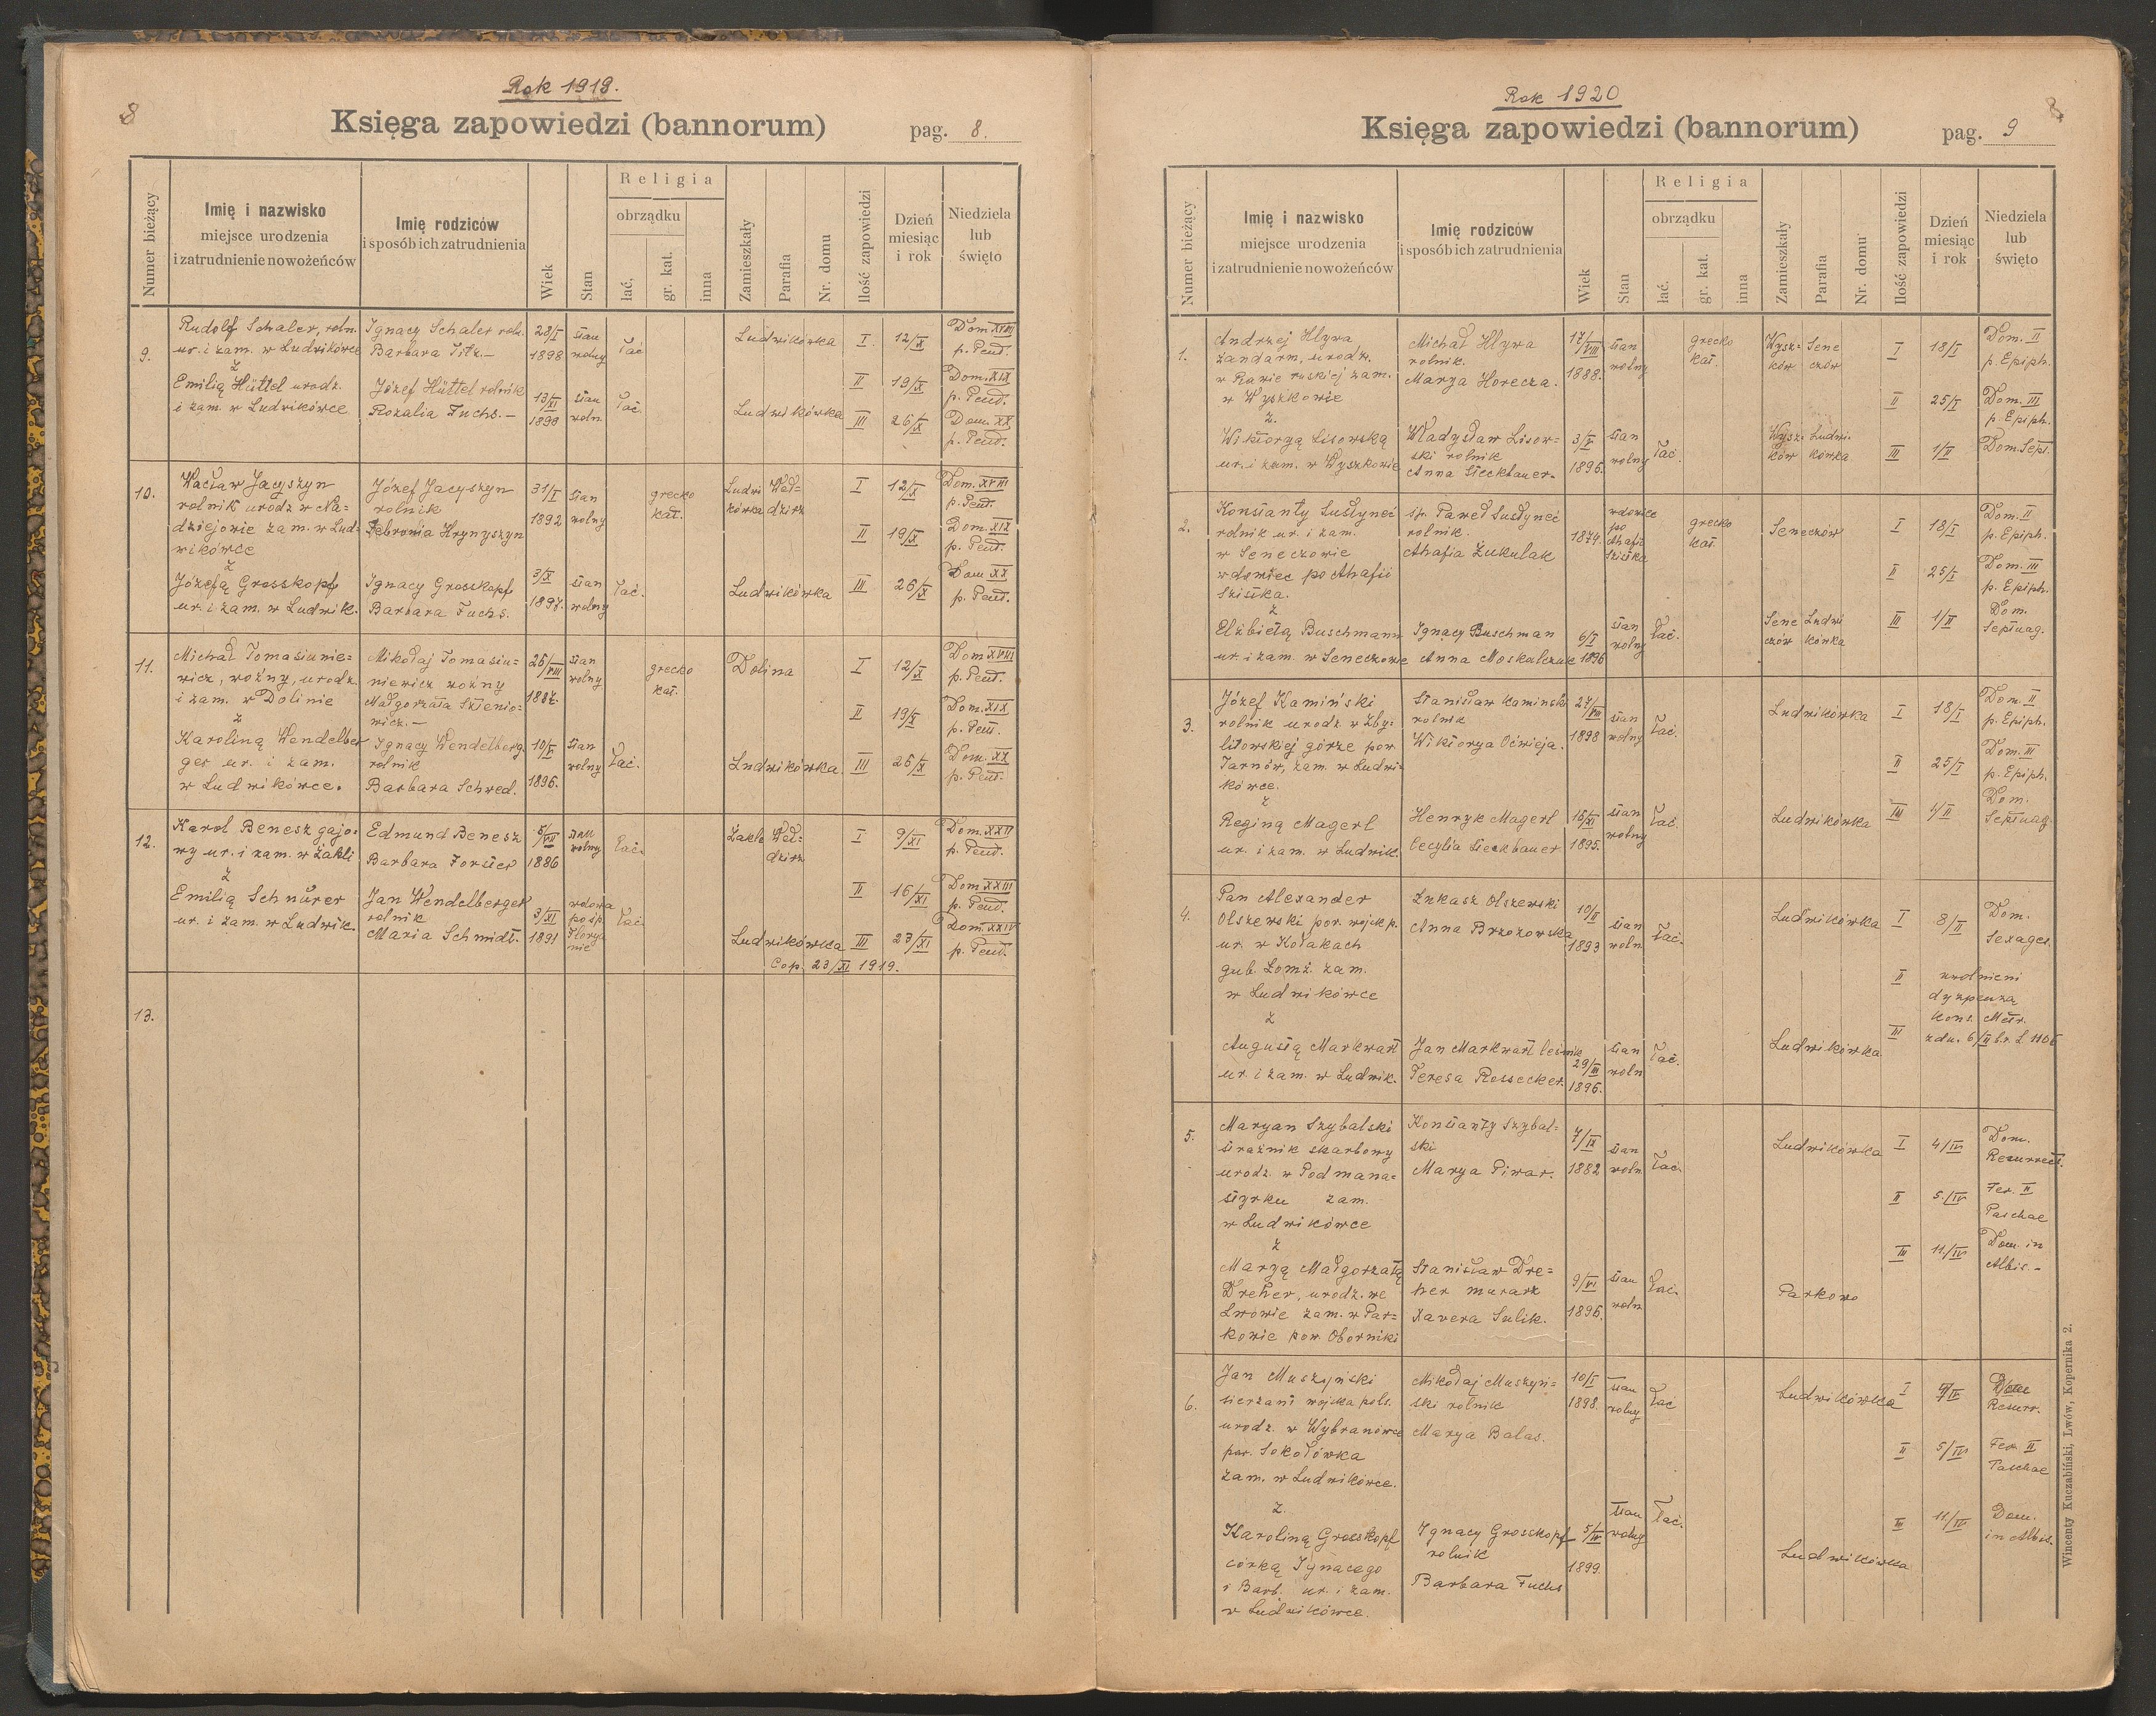 8
Rok 1919.
Księga zapowiedzi (bannorum)
pag. 8.
Numer bieżący
Imię i nazwisko
miejsce urodzenia
i zatrudnienie nowożeńców
Imię rodziców
i sposób ich zatrudnienia
Wiek
Stan
Religia
obrządku
łać.
gr. kat.
inna
Zamieszkały
Parafia
Nr. domu
Ilość zapowiedzi
Dzień
miesiąc
i rok
Niedziela
lub
święto
9.
Rudolf Schaler, roln.
ur. i zam. w Ludwikówce
z
Emilią Hüttel urodz.
i zam. w Ludwikówce
Ignacy Schaler roln.
Barbara Titz.—
Józef Hüttel rolnik
Rozalia Fuchs.—
28/I
1898
13/XI
1899
stan
wolny
stan
woln.
łać
łać.
Ludwikówka
Ludwikówka
I.
II
III
12/X
19/X
26/X
Dom. XVIII
p. Pent.
Dom. XIX
p. Pent.
Dom. XX
p. Pent.
10.
Wacław Jacyszyn
rolnik urodz w Na=
dziejowie zam. w Lud-
wikówce
z
Józefą Grosskopf
ur. i zam. w Ludwik.
Józef Jacyszyn
rolnik
Febronia Hrynyszyn
Ignacy Grosskopf
Barbara Fuchs.
31/I
1892
3/X
1897.
stan
wolny
stan
wolny
łać.
grecko
kat.
Ludwi
kówka
Weł=
dzirz
Ludwikówka
I
II
III
12/X
19/X
26/X
Dom. XVIII
p. Pent.
Dom. XIX
p. Pent.
Dom XX
p. Pent.
11.
Michał Tomasiunie=
wicz, woźny, urodz.
i zam. w Dolinie
z
Karoliną Wendelber
ger ur. i zam.
w Ludwikówce.
Mikołaj Tomasiu=
niewicz woźny
Małgorzata Sztenio=
wicz.—
Ignacy Wendelberg.
rolnik
Barbara Schwed.
26/VIII
1887.
10/V
1896.
stan
wolny
stan
wolny
łać.
grecko
kat.
Dolina
Ludwikówka
I
II
III
12/X
19/X
26/X
Dom XVIII
p. Pent.
Dom. XIX
p. Pent.
Dom. XX
p. Pent.
12.
Karol Benesz gajo=
wy ur. i zam. w Zakli
z
Emilią Schnürer
ur. i zam. w Ludwik.
Edmund Benesz
Barbara Forster
Jan Wendelberger
rolnik
Maria Schmidt.
5/VII
1886
3/XI
1891
stan
wolny
wdowa
po śp.
Florya
nie
łać.
łać.
Zakla
Weł=
dzirz
Ludwikówka
I
II
III
9/XI
16/XI
23/XI
Dom. XXII
p. Pent.
Dom XXIII
p. Pent.
Dom. XXIV
p. Pent.
Cop. 23/XI 1919.
13.
8
Rok 1920
Księga zapowiedzi (bannorum)
pag. 9
Numer bieżący
Imię i nazwisko
miejsce urodzenia
i zatrudnienie nowożeńców
Imię rodziców
i sposób ich zatrudnienia
Wiek
Stan
Religia
obrządku
łać.
gr. kat.
inna
Zamieszkały
Parafia
Nr. domu
Ilość zapowiedzi
Dzień
miesiąc
i rok
Niedziela
lub
święto
1.
Andrzej Hlywa
żandarm, urodz.
w Rawie ruskiej zam.
w Wyszkowie
z.
Wiktoryą Lisowską
ur. i zam. w Wyszkowie
Michał Hlywa
rolnik.
Marya Horecza.
Władysław Lisow=
ski rolnik
Anna Sieckbauer.
17/VIII
1888.
3/V
1896.
stan
wolny
stan
wolny
łać.
grecko
kat.
Wysz=
ków
Sene
czów
Wysz=
ków
Ludwi.
kówka
I
II
III
18/I
25/I
1/II
Dom. II
p. Epiph.
Dom. III
p. Epiph.
Dom. Sept.
2.
Konstanty Susłyneć
rolnik ur. i zam.
w Seneczowie
wdowiec po Ahafii
Szistka.
z
Elżbietą Buschmann
ur. i zam. w Seneczowie
śp. Paweł Susłyneć
rolnik.
Ahafia Żukulak
Ignacy Buschman
Anna Moskalczuk
1874.
6/I
1896
wdowiec
po
Ahafii
Szistka
stan
wolny
łać.
grecko
kat.
Seneczów
Sene
czów
Ludwi
kówka
I
II
III
18/I
25/I
1/II
Dom. II
p. Epiph.
Dom. III
p. Epiph.
Dom.
Septuag.
3.
Józef Kamiński
rolnik urodz. w Zby=
litowskiej górze pow.
Tarnów, zam. w Ludwi=
kówce.
z
Reginą Magerl
ur. i zam. w Ludwik.
Stanisław Kamiński
rolnik
Wiktorya Oćwieja.
Henryk Magerl
Cecylia Sieckbauer
27/VIII
1898
16/XI
1895.
stan
wolny
stan
wolny
łać.
łać.
Ludwikówka
Ludwikówka
I
II
III
18/I
25/I
1/II
Dom. II
p. Epiph.
Dom. III
p. Epiph.
Dom.
Septuag.
4.
Pan Alexander
Olszewski por. wojsk p.
ur. w Kołakach
gub. Łomż. zam.
w Ludwikówce
z
Augustą Markwart
ur. i zam. w Ludwik.
Łukasz Olszewski
Anna Brzozowska
Jan Markwart leśnik
Teresa Rossecker.
10/II
1893
29/III
1896.
stan
woln.
stan
woln
łać.
łać.
Ludwikówka
Ludwikówka
I
II
III
8/II
Dom.
Sexages.
uwolnieni
dyspenzą
Kons. Metr.
z dn. 6/II br. L 1106
5.
Maryan Szybalski
strażnik skarbowy
urodz. w Podmana=
styrku zam.
w Ludwikówce
z
Maryą Małgorzatą
Dreher, urodz. we
Lwowie zam. w Par=
kowie pow. Oborniki
Konstanty Szybal=
ski
Marya Piwar.
Stanisław Dre=
her murarz
Xavera Sulik.
7/IX
1882
9/VI
1896.
stan
woln.
stan
woln
łać.
łać.
Ludwikówka
Parkowo
I
II
III
4/IV
5./IV
11./IV
Dom.
Resurrect.
Fer. II
Paschae
Dom. in
Albis.—
6.
Jan Muszyński
sierżant wojska pols.
urodz. w Wybranówce
par. Sokołówka
zam. w Ludwikówce.
z.
Karoliną Grosskopf
córką Ignacego
i Barb. ur. i zam.
w Ludwikówce.
Mikołaj Muszyń=
ski rolnik
Marya Balas.
Ignacy Grosskopf
rolnik
Barbara Fuchs
10/I
1898.
1899.
stan
wolny
stan
wolny
łać
łać.
Ludwikówka
Ludwikówka
I
II
III
4/IV
5/IV
11/IV
Dom
Resurr.
Fer. II
Paschae
Dom.
in Albis.
Wincenty Kuczabiński, Lwów, Kopernika 2.